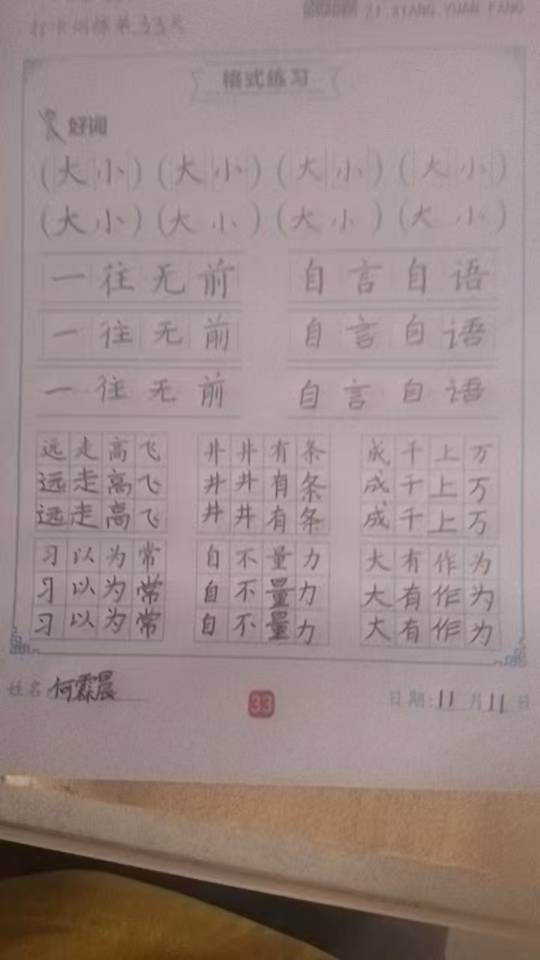 打卡训练第33天
XIANG YUAN FANG
格式练习
好词
(大小)(大小)(大小)(大小)
(大小)(大小)(大小)(大小)
一往无前 自言自语
一往无前 自言自语
一往无前 自言自语
远走高飞 井井有条 成千上万
远走高飞 井井有条 成千上万
远走高飞 井井有条 成千上万
习以为常 自不量力 大有作为
习以为常 自不量力 大有作为
习以为常 自不量力 大有作为
姓名 何霖晨 33 日期:11月11日